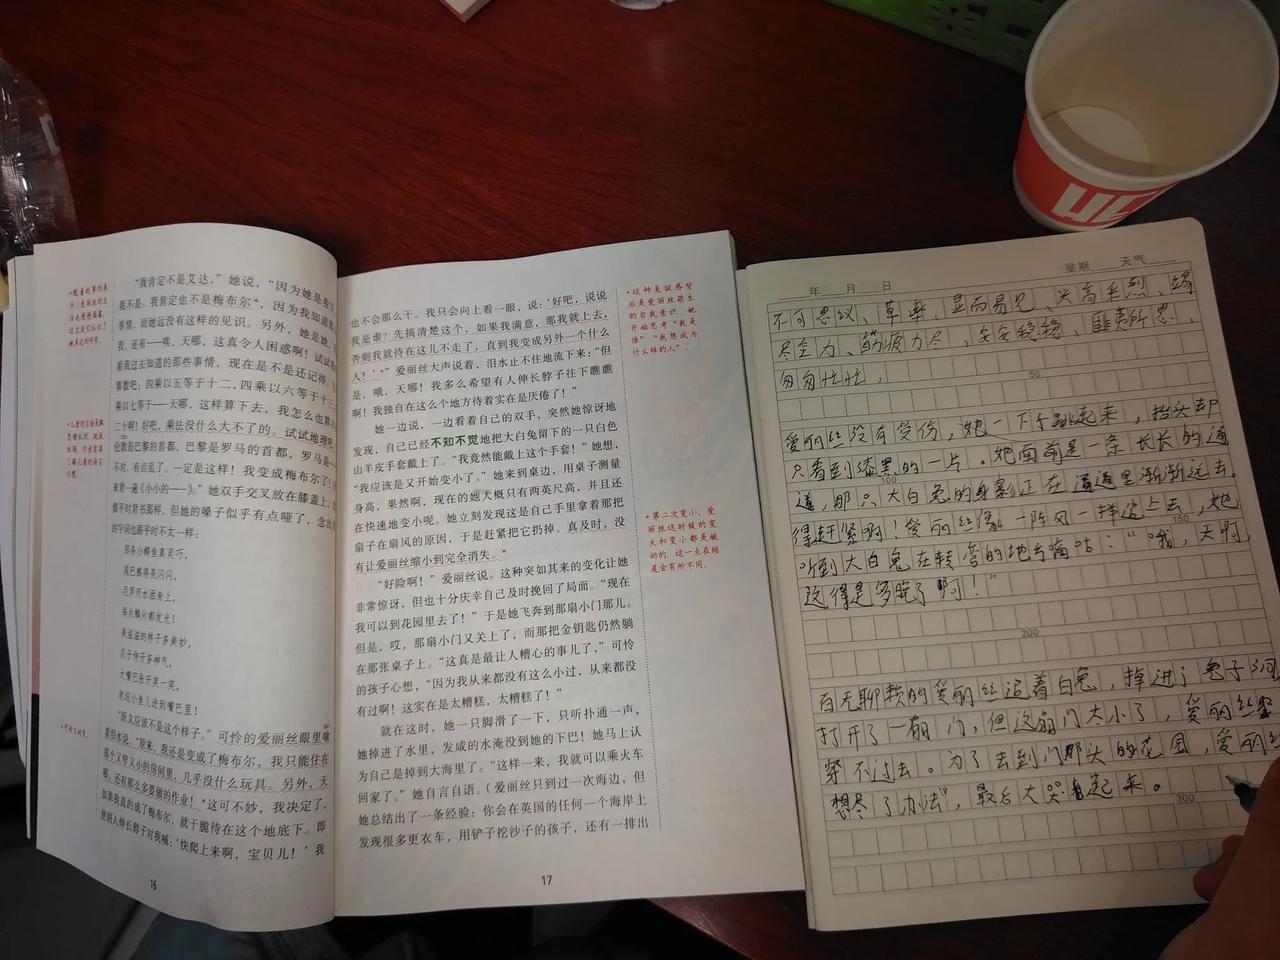 “我肯定不是艾达，”她说，“因为她是卷
我不是。我肯定也不是梅布尔*，因为我知道
事情，而她远没有这样的见识。另外，她是她，
我，还有——唉，天哪，这真令人困惑啊！试试
着我过去知道的那些事情，现在是不是还记得，
算数吧：四乘以五等于十二，四乘以六等于十三，
乘以七等于——天哪，这样算下去，我怎么也算
二十啊！好吧，乘法没什么大不了的。试试地理吧
伦敦是巴黎的首都，巴黎是罗马的首都，罗马是——
不对，有点乱了。一定是这样！我变成梅布尔了！
来背一遍《小小的——》。”她双手交叉放在膝盖上，
像平时背书那样，但她的嗓子似乎有点哑了，念出
的字词也跟平时不太一样：
那条小鳄鱼真灵巧，
尾巴擦得亮闪闪，
尼罗河水洒身上，
每片鳞片都发光！
爪子伸开多神气，
大嘴巴张开笑一笑，
欢迎小鱼儿进到嘴巴里！
“原文应该不是这个样子。”可怜的爱丽丝眼里噙
着泪水说，“原来，我还是变成了梅布尔，我只能住在
那个又窄又小的房间里，几乎没什么玩具。另外，天
哪，还有那么多要做的作业！*这可不妙，我决定了，
如果我真的成了梅布尔，就干脆待在这个地底下。即
使别人伸长脖子对我喊：‘快爬上来啊，宝贝儿！’我
16
也不会那么干。我只会向上看一眼，说：‘好吧，说说
我是谁？先搞清楚这个，如果我满意，那我就上去，
否则我就待在这儿不走了，直到我变成另外一个什么
人！’*”爱丽丝大声说着，泪水止不住地流下来：“但
是，哦，天哪！我多么希望有人伸长脖子往下瞧瞧
啊！我独自在这么个地方待着实在是厌倦了！”
她一边说，一边看着自己的双手，突然她惊讶地
发现，自己已经不知不觉地把大白兔留下的一只白色
山羊皮手套戴上了。“我竟然能戴上这个手套！”她想，
“我应该是又开始变小了。”她来到桌边，用桌子测量
身高，果然啊，现在的她大概只有两英尺高，并且还
在快速地变小呢。她立刻发现这是自己手里拿着那把
扇子在扇风的原因，于是赶紧把它扔掉。真及时，没
有让爱丽丝缩小到完全消失。*
“好险啊！”爱丽丝说。这种突如其来的变化让她
非常惊讶，但也十分庆幸自己及时挽回了局面。“现在
我可以到花园里去了！”于是她飞奔到那扇小门那儿。
但是，哎，那扇小门又关上了，而那把金钥匙仍然躺
在那张桌子上。“这真是最让人糟心的事儿了，”可怜
的孩子心想，“因为我从来都没有这么小过，从来都没
有过啊！这实在是太糟糕，太糟糕了！”
就在这时，她一只脚滑了一下，只听扑通一声，
她掉进了水里，发咸的水淹没到她的下巴！她马上认
为自己是掉到大海里了。“这样一来，我就可以乘火车
回家了。”她自言自语。（爱丽丝只到过一次海边，但
她总结出了一条经验：你会在英国的任何一个海岸上
发现很多更衣车，用铲子挖沙子的孩子，还有一排出
17
*这种荒诞感背
后是爱丽丝萌生
的自我意识，她
开始思考“我是
谁”“我想成为
什么样的人”。
*第二次变小。爱
丽丝这时候的变
大和变小都是被
动的，这一点在结
尾会有所不同。
年 月 日
星期 天气
不可思议、草率、显而易见、兴高采烈、竭
尽全力、筋疲力尽、安安稳稳、匪夷所思、
50
匆匆忙忙，
爱丽丝没有受伤，她一下子跳起来，抬头却
只看到漆黑的一片。她面前是一条长长的通
100
道，那只大白兔的身影正在通道里渐渐远去。
得赶紧啊！爱丽丝像一阵风一样追上去，她
150
听到大白兔在转弯的地方嘀咕：“哦，天啊，
这得是多晚了啊！”
200
百无聊赖的爱丽丝追着白兔，掉进了兔子洞
打开了一扇门，但这扇门太小了，爱丽丝
穿不过去。为了去到门那头的花园，爱丽丝
想尽了办法，最后大哭起来。
300